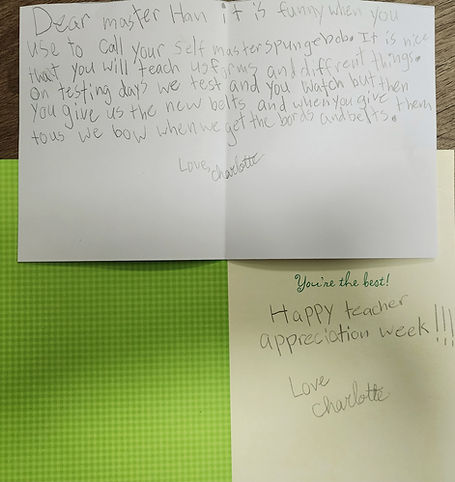 Dear master Han it is funny when you
use to call your self master spungebob. It is nice
that you will teach us forms and diffrent things.
On testing days we test and you watch but then
you give us the new belts and when you give them
to us we bow when we get the bords and belts.
Love, charlotte
You're the best!
Happy teacher
appreciation week!!!
Love
charlotte